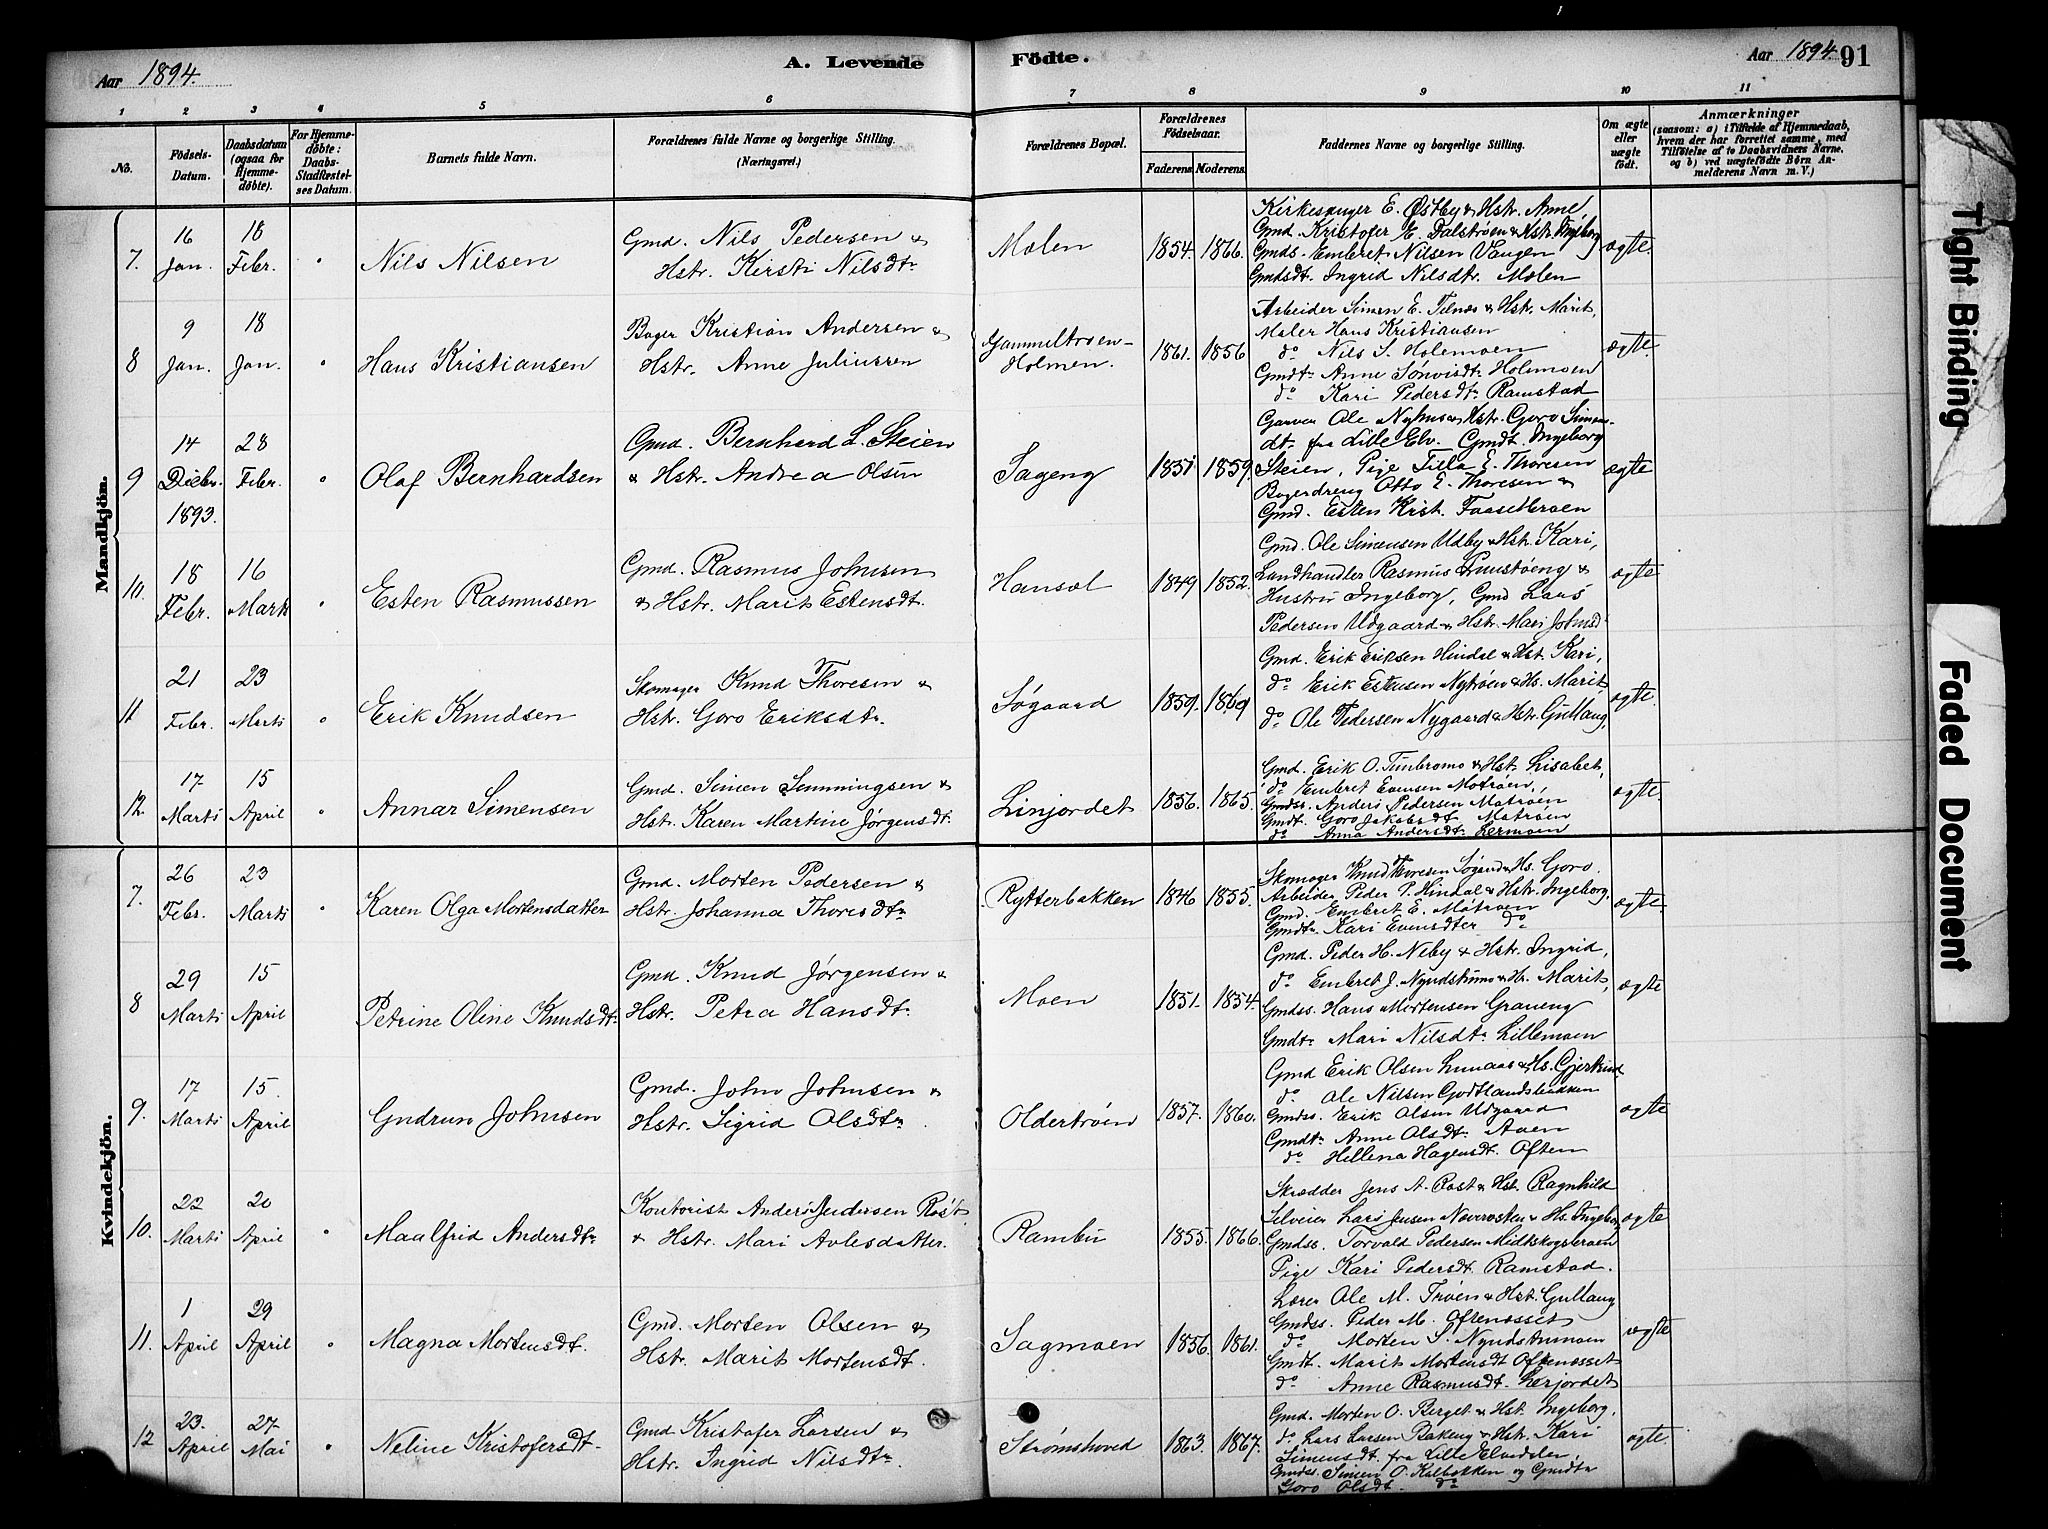 Aar 1894. A. Levende Födte. Aar 1894. 91
1 2 3 4 5 6 7 8 9 10 11
No. Födsels-Datum. Daabsdatum (ogsaa for Hjemmedöbte). For Hjemmedöbte: Daabs-Stadfæstelses Datum. Barnets fulde Navn. Forældrenes fulde Navne og borgerlige Stilling. (Næringsvei.) Forældrenes Bopæl. Forældrenes Födselsaar. Faderens. Moderens. Faddernes Navne og borgerlige Stilling. Om ægte eller uægte födt. Anmærkninger (saasom: a) i Tilfælde af Hjemmedaab, hvem der har forrettet samme, med Tilföielse af to Daabsvidners Navne, og b) ved uægtefödte Börn Anmelderens Navn m. V.)
Mandkjön.
7. 16 Jan. 18 Febr. " Nils Nilsen
Gmd. Nils Pedersen &
Hstr. Kirsti Nilsdtr
Molen 1854. 1866.
Kirkesanger E. Østby & Hstr. Anne
Gmd. Kristofer E. Dalstrøen & Hstr. Ingeborg
Gmds. Embret Nilsen Vangen
Gmdsdt. Ingrid Nilsdtr. Molen
ægte.
8 9 Jan. 18 Jan. " Hans Kristiansen
Bager Kristian Andersen &
Hstr. Anne Juliussen
Gammeltroen-
Holmen. 1861. 1856
Arbeider Simen E. Telnes & Hstr. Marit,
Maler Hans Kristiansen
do Nils S. Holemoen
Gmdtr Anne Sønvisdtr Holemoen
do Kari Pedersdtr Ramstad
ægte.
9 14 Decbr. 1893. 28 Febr. " Olaf Bernhardsen
Gmd. Bernhard L. Steien
& Hstr. Andrea Olsen
Sageng 1851 1859.
Garver Ole Nyhus & Hstr. Goro Simens-
dt. fra Lille Elv. Gmdt. Ingeborg
Steien, Pige Tilla E. Thoresen
Bagerdreng Otto E. Thoresen &
Gmd. Esten Krist. Faaseteroen
ægte
10. 18 Febr. 16 Marts " Esten Rasmussen
Gmd. Rasmus Johnsen
& Hstr. Marit Estensdt.
Hansol 1849 1852.
Gmd. Ole Simensen Udby & Hstr. Kari,
Landhandler Rasmus Tunstøeng &
Hustru Ingeborg, Gmd Lars
Pedersen Udgaard & Hstr. Mari Johnsd
ægte
11 21 Febr. 23 Marts " Erik Knudsen
Skomager Knud Thoresen &
Hstr. Goro Eriksdtr.
Søgaard 1859. 1869
Gmd. Erik Eriksen Hindal & Hst. Kari,
do Erik Estensen Nytrøen & Hs. Marit,
do Ole Pedersen Nygaard & Hstr. Gullaug,
ægte.
12. 17 Marts 15 April " Annar Simensen
Gmd. Simen Semmingsen &
Hstr. Karen Martine Jørgensdt.
Linjordet 1856. 1865.
Gmd. Erik O. Tunbromo & Hst. Lisabet,
do Embret Evensen Motrøen,
Gmdss. Anders Pedersen Motrøen
Gmdt. Goro Jakobsdt Motrøen
do Anna Andersdt. Lermoen
ægte.
Kvindekjön.
7. 26 Febr. 23 Marts " Karen Olga Mortensdatter
Gmd. Morten Pedersen &
Hstr. Johanna Thoresdtr
Rytterbakken 1846 1855.
Skomager Knud Thoresen Søgaard & Hs. Goro.
Arbeider Peder P. Hindal & Hstr. Ingeborg.
Gmd. Embret E. Motrøen
Gmdtr. Kari Evensdter do
ægte.
8 29 Marts 15 April Petrine Oline Knudsdt.
Gmd. Knud Jørgensen &
Hstr. Petra Hansdtr
Moen 1851. 1854.
Gmd. Peder H. Neby & Hstr. Ingrid,
do Embret J. Nyndstumo & Hs. Marit,
Gmdss. Hans Mortensen Graueng
Gmdtr. Mari Nilsdtr Lillemoen
ægte
9. 17 Marts 15. April Gudrun Johnsen
Gmd. John Johnsen &
Hstr. Sigrid Olsdtr.
Oldertrøen 1857. 1860.
Gmd Erik Olsen Lunaas & Hs. Gjertrud,
do Ole Nilsen Godtlandsbakken
Gmdss. Erik Olsen Udgaard
Gmdtr. Anne Olsdt. Aaen
do Hellena Hagensdt. Often
ægte
10. 22 Marts 20 April " Maalfrid Andersdtr
Kontorist Anders Jendersen Røst
& Hstr. Mari Avlesdatter.
Rambu 1855. 1866.
Skrædder Jens A. Rost & Hst. Ragnhild
Selveier Lars Jensen Naverosten & Hs. Ingeborg
Gmdss. Torvald Pedersen Midtskogsteroen
Pige Kari Pedersdt. Ramstad.
ægte
11. 1 April 29 April " Magna Mortensdt.
Gmd. Morten Olsen &
Hstr. Marit Mortensdt.
Sagmoen 1856. 1861.
Lærer Ole M. Trøen & Hst. Gullaug
Gmdss. Peder M. Oftenæsset
do Morten S. Nyndstumoen
Gmdt. Marit Mortensdt Oftenæsset
do Anne Rasmusdt. Lerjordet
ægte
12 23. April 27 Mai " Neline Kristofersdt.
Gmd Kristofer Larsen &
Hstr. Ingrid Nilsdtr.
Strømshoved 1863. 1867.
Gmd. Morten O. Berget & Hst Ingeborg,
do Lars Larsen Bakeng & Hstr. Kari
Simensdt. fra Lille Elvedalen
Gmdss. Simen O. Kolbakken og Gmdtr
Goro Olsdt. do
ægte.
Tight Binding
Faded Document